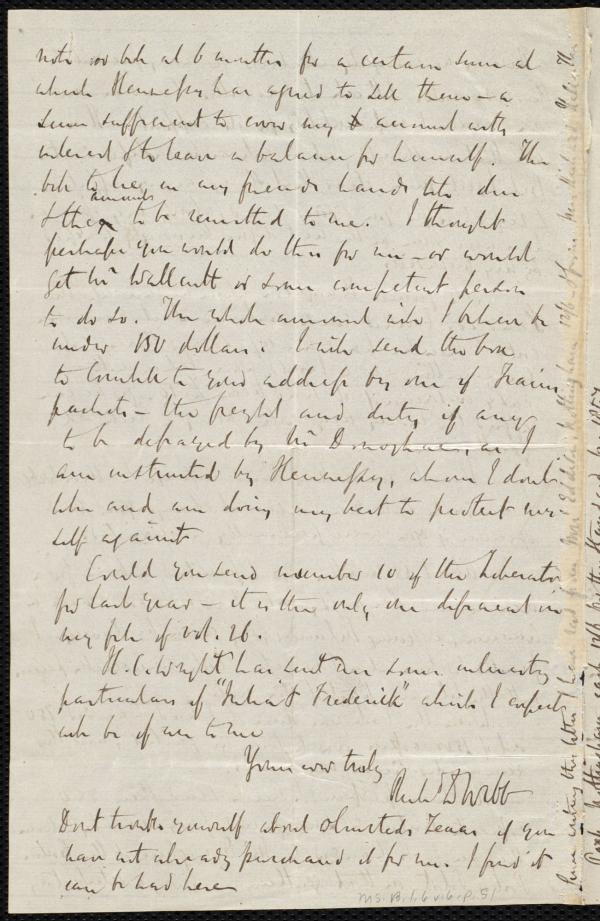 note or bill at 6 months for a certain sum at
which Hennessy has agreed to sell them - a
sum sufficient to cover my account with
interest & to leave a balance for himself. The
bill to lie in my friends hands till due
& the amount to be remitted to me. I thought
perhaps you would do this for me - or would
get Mr Wallcutt or some competent person
to do so. The whole amount will I believe be
under 150 dollars. I will send the box
to consigned to your address by one of Trains
packets - the freight and duty, if any
to be defrayed by Mr Donoghue, as I
am instructed by Hennessy, whom I don't
like and am doing my best to protect my-
self against
Could you send number 10 of the Liberator
for last year - it is the only one deficient in
my file of vol. 26.
H. C. Wright has sent me some interesting
particulars of "Frederick" which I expect
will be of use to me
Yours ever truly
Richd D Webb
Dont trouble yourself about Olmsted's Texas if you
have not already purchased it for me. I find it
can be had here
Ms. B.1.6 v.6 p.51
Since writing this letter I have read from Mr
Park, Nottingham